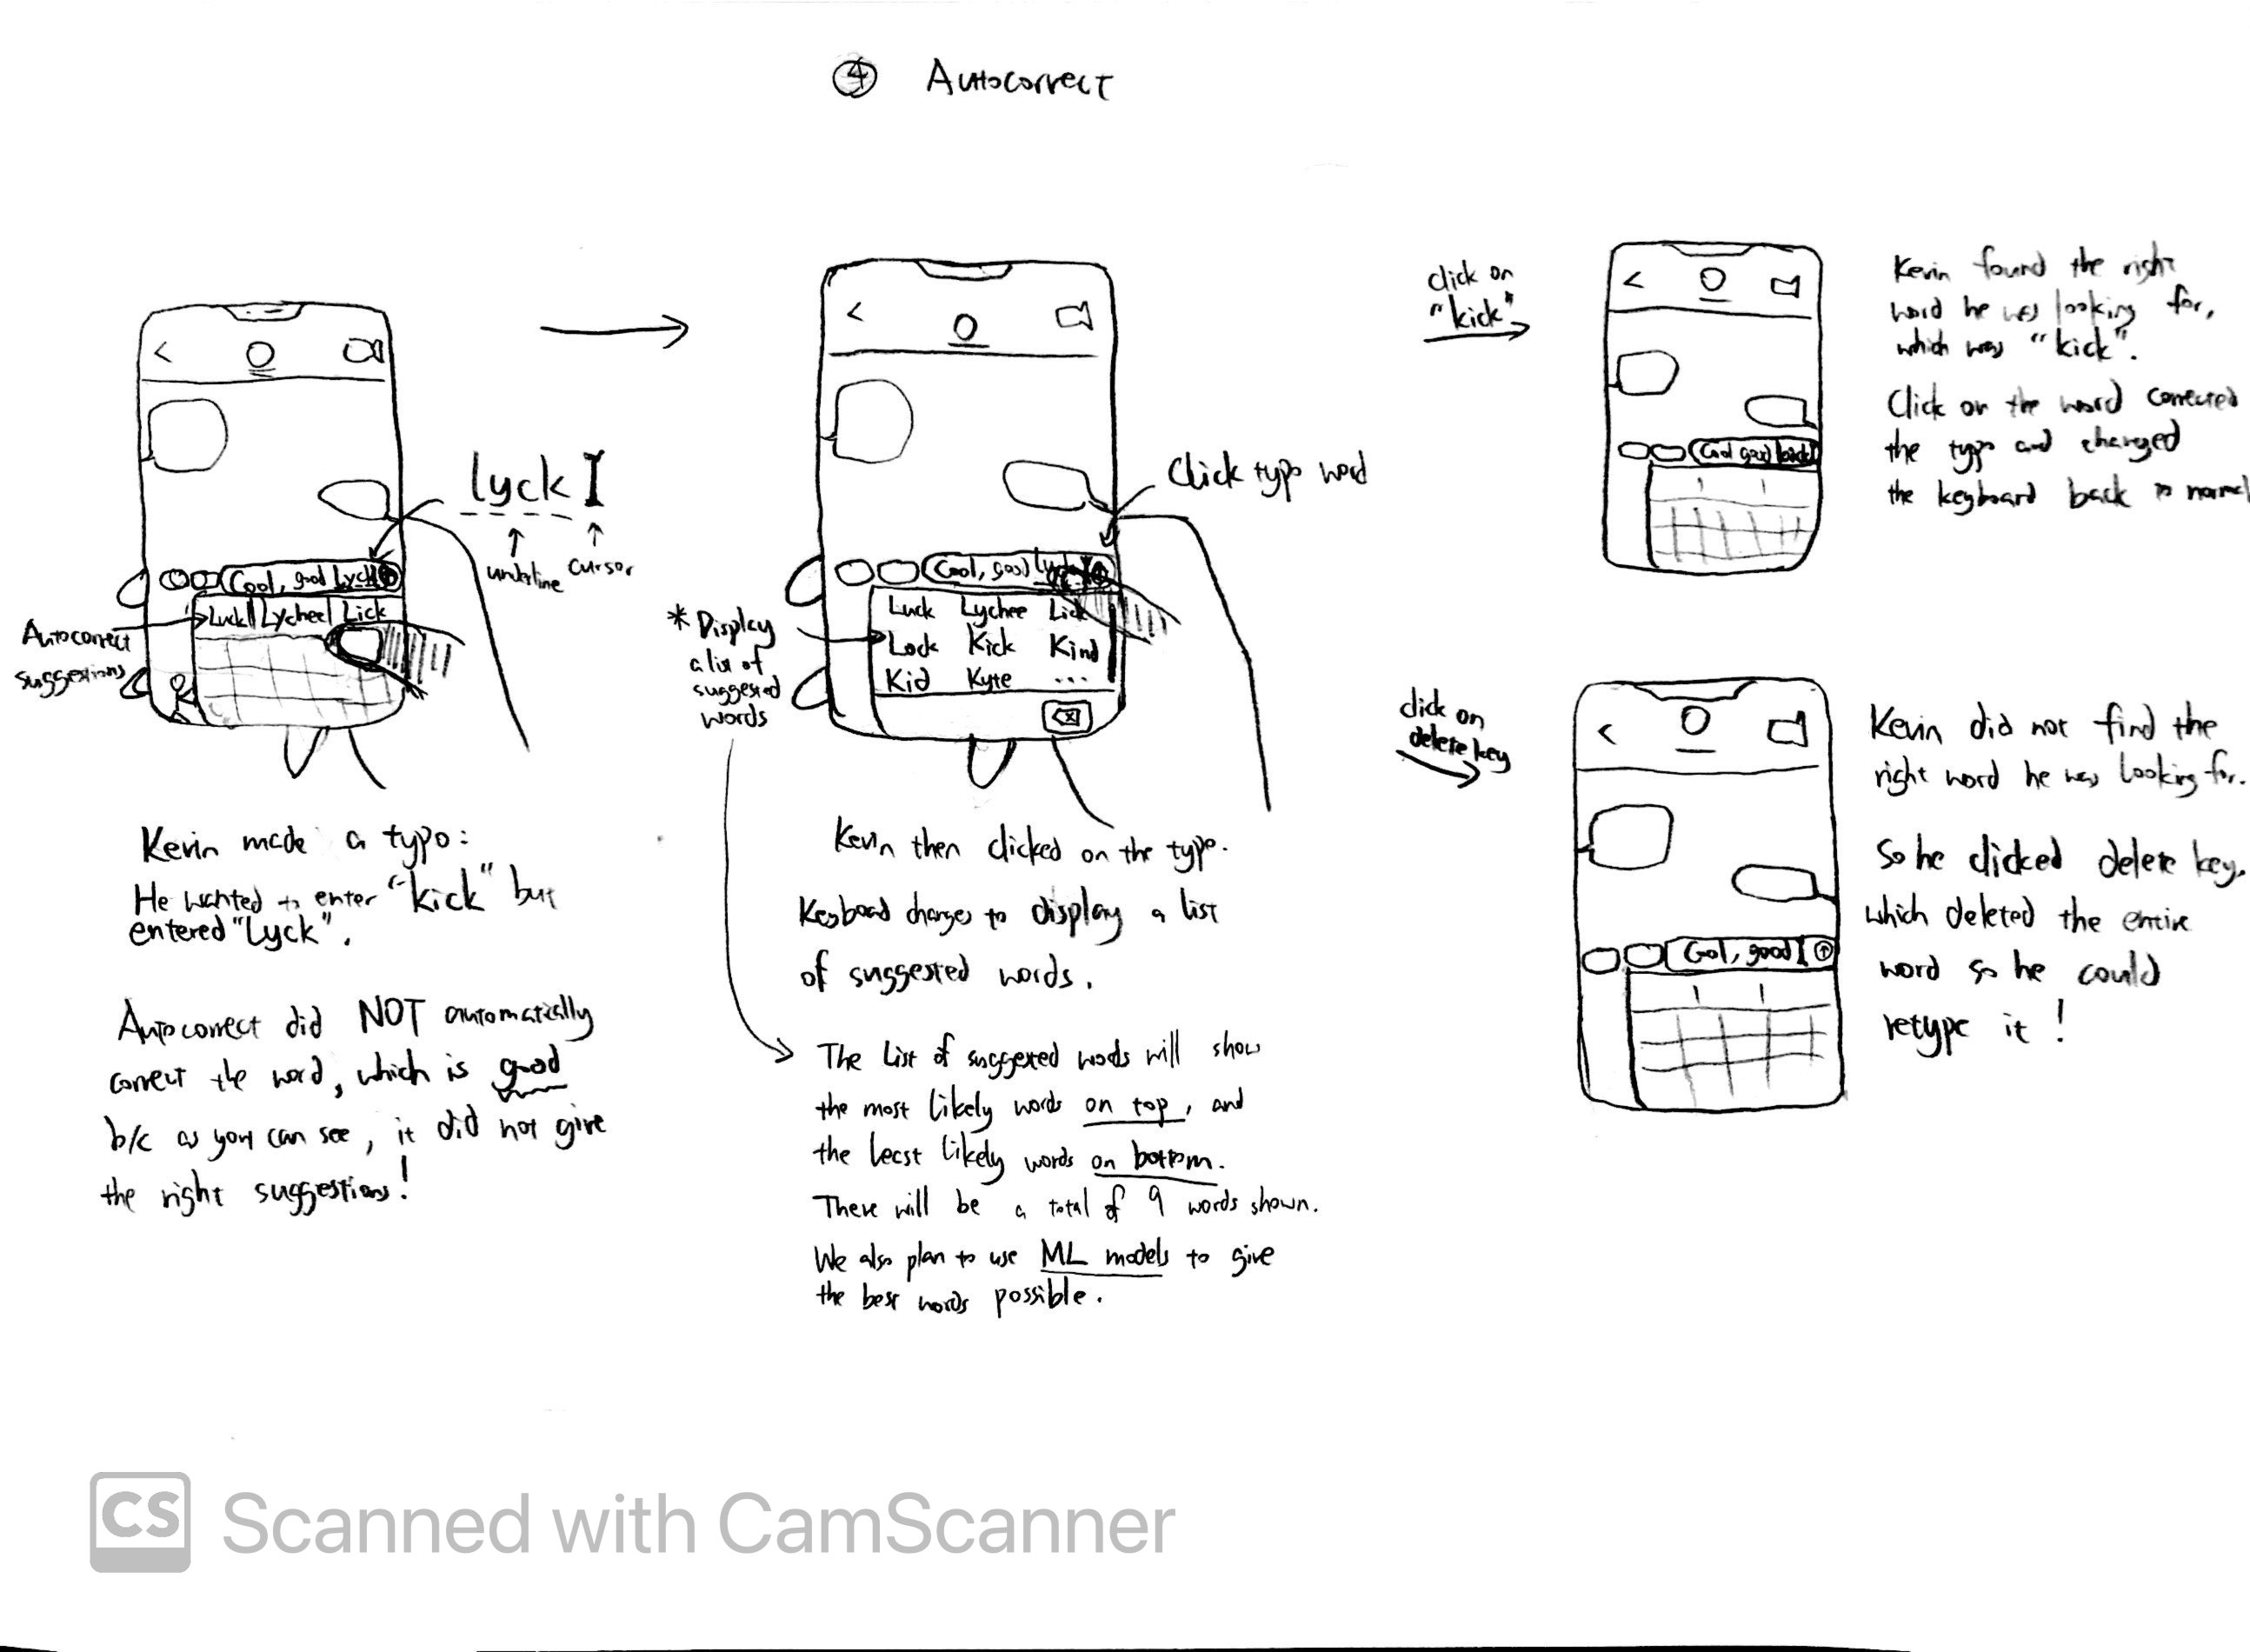 ④ Autocorrect
lyck
underline
cursor
Cool, good Lyck
Luck Lychee Lick
Autocorrect
suggestions
Kevin made a typo:
He wanted to enter "kick" but
entered "Lyck".
Autocorrect did NOT automatically
correct the word, which is good
b/c as you can see, it did not give
the right suggestions!
Click typo word
Cool, good
Luck Lychee Lick
Lock Kick Kind
Kid Kyte ...
* Display
a list of
suggested
words
Kevin then clicked on the typo.
Keyboard changes to display a list
of suggested words.
The list of suggested words will show
the most likely words on top, and
the least likely words on bottom.
There will be a total of 9 words shown.
We also plan to use ML models to give
the best words possible.
click on
"kick"
Cool good kick
Kevin found the right
word he was looking for,
which was "kick".
Click on the word corrected
the typo and changed
the keyboard back to normal
click on
delete key
Cool, good
Kevin did not find the
right word he was looking for.
So he clicked delete key,
which deleted the entire
word so he could
retype it!
CS Scanned with CamScanner